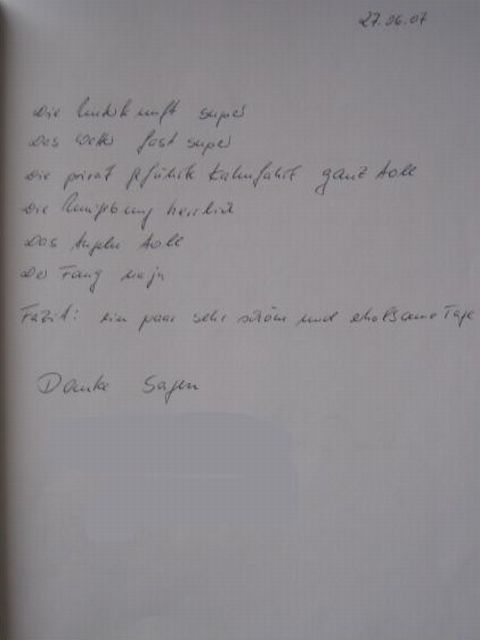 27.06.07
Die Unterkunft super
Das Wetter fast super
Die privat geführte Kahnfahrt ganz toll
Die Umgebung herrlich
Das Angeln toll
Der Fang naja
Fazit: ein paar sehr schöne und erholsame Tage
Danke Sagen